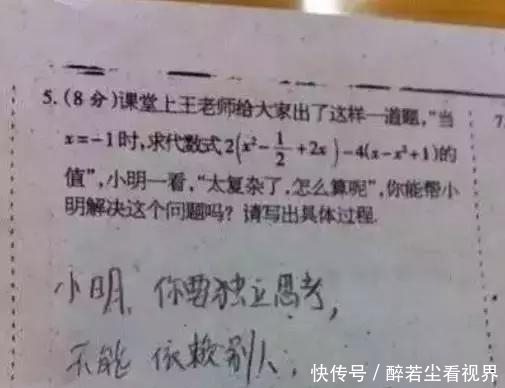 5.(8分)课堂上王老师给大家出了这样一道题,"当
x=-1时,求代数式2(x²-1/2+2x)-4(x-x²+1)的
值",小明一看,"太复杂了,怎么算呢",你能帮小
明解决这个问题吗?请写出具体过程.
7.
小明,你要独立思考,
不能依赖别人.
快传号/醉若尘看视界